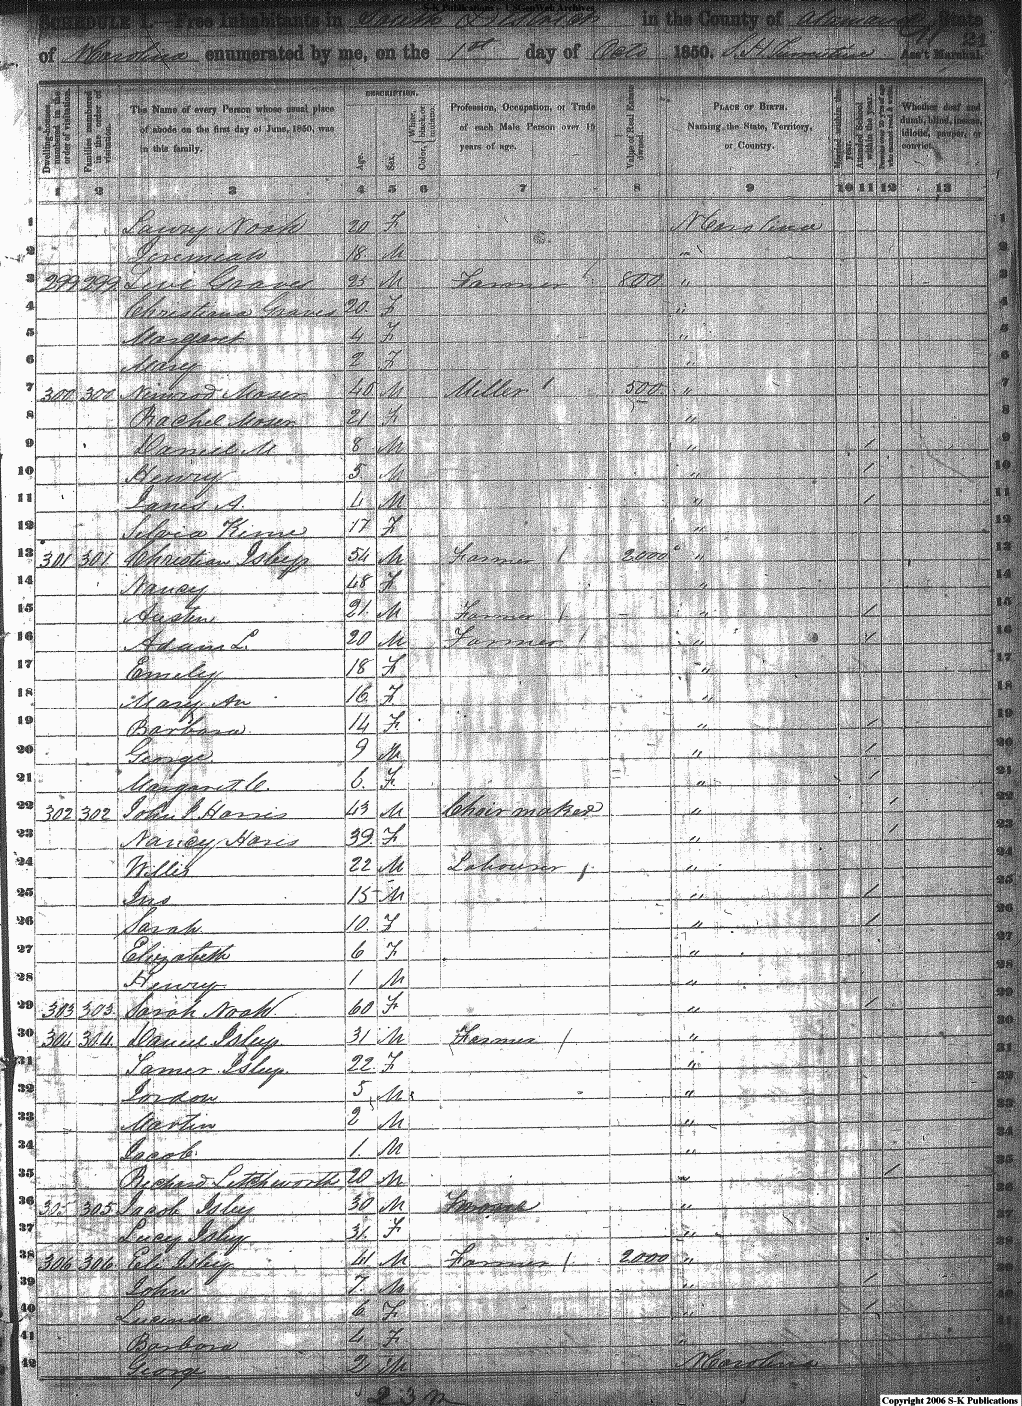 S-K Publications - USGenWeb Archives
SCHEDULE I.—Free Inhabitants in South District in the County of Alamance State
of N Carolina enumerated by me, on the 1st day of Octo 1850. Ass't Marshal. 21
DESCRIPTION.
Dwelling-houses numbered in the order of visitation. Families numbered in the order of visitation. The Name of every Person whose usual place of abode on the first day of June, 1850, was in this family. Age. Sex. Color, White, black, or mulatto. Profession, Occupation, or Trade of each Male Person over 15 years of age. Value of Real Estate owned. PLACE OF BIRTH. Naming the State, Territory, or Country. Married within the year. Attended School within the year. Persons over 20 y'rs of age who cannot read & write. Whether deaf and dumb, blind, insane, idiotic, pauper, or convict.
1 2 3 4 5 6 7 8 9 10 11 12 13
1 Lawry Noah 20 F N Carolina 1
2 Jeremiah 18 M " 2
3 299 299 Levi Graves 25 M Farmer 800 " 3
4 Christiana Graves 20 F " 4
5 Margaret 4 F " 5
6 Mary 2 F " 6
7 300 300 Nimrod Moser 40 M Miller / 500 " 7
8 Rachel Moser 21 F " 8
9 Daniel M 8 M " / 9
10 Henry 5 M " / 10
11 A. 4 M " / 11
12 Silvia Kime 17 F " 12
13 301 301 Christian Isley 54 M Farmer / 2000 " 13
14 Nancy 48 F " 14
15 Austin 21 M Farmer / " / 15
16 Adam L. 20 M Farmer / " / 16
17 Emeley 18 F " 17
18 Mary An 16 F " 18
19 Barbara 14 F " / 19
20 George 9 M " / 20
21 Margaret C. 6 F " / 21
22 302 302 John Harris 43 M Chair maker " / 22
23 Nancy Hares 39 F " / 23
24 Willis 22 M Labourer / " 24
25 15 M " / 25
26 Sarah 10 F " / 26
27 Elizabeth 6 F " 27
28 Henry 1 M " 28
29 303 303 Sarah Noah 60 F " / 29
30 304 304 Daniel Isley 31 M Farmer / " 30
31 Tamer Isley 22 F " 31
32 Jordon 5 M " 32
33 Martin 2 M " 33
34 Jacob 1 M " 34
35 Richard Letchworth 20 M " / 35
36 305 305 Jacob Isley 30 M " 36
37 Lucy Isley 31 F " 37
38 306 306 Eli Isley 41 M Farmer / 2000 " 38
39 John 7 M " / 39
40 Lucinda 6 F " / 40
41 Barbara 4 F " 41
42 George 2 M N Carolina
Copyright 2006 S-K Publications